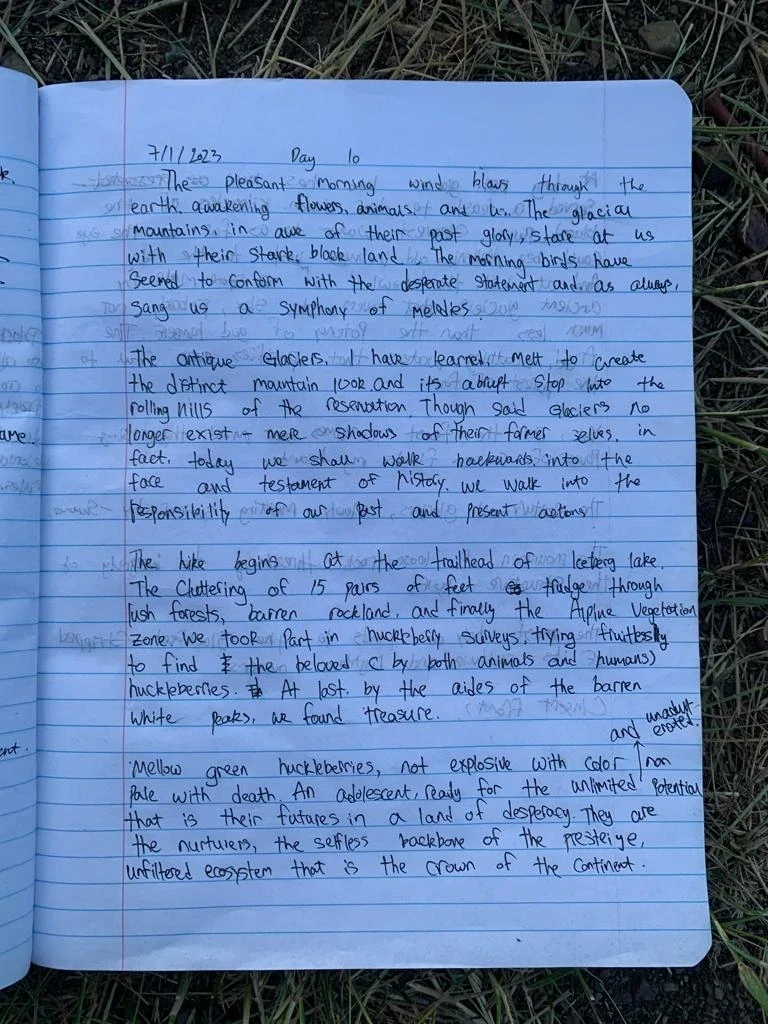 7/1/2023 Day 10
The pleasant morning wind blows through the
earth, awakening flowers, animals, and us. The glacial
mountains, in awe of their past glory, stare at us
with their stark, black land. The morning birds have
seemed to conform with the desperate statement and, as always,
sang us a symphony of melodies.
The antique Glaciers, I have learned, melt to create
the distinct mountain look and its abrupt stop into the
rolling hills of the reservation. Though said Glaciers no
longer exist - mere shadows of their former selves, in
fact, today we shall walk backwards, into the
face and testament of history. we walk into the
responsibility of our past and present actions.
The hike begins at the trailhead of Iceberg lake.
The Cluttering of 15 pairs of feet trudge through
lush forests, barren rockland, and finally the Alpine Vegetation
zone. we took part in huckleberry surveys, trying fruitlessly
to find the beloved (by both animals and humans)
huckleberries. At last, by the aides of the barren
white peaks, we found treasure.
and unadulterated.
Mellow green huckleberries, not explosive with color non
pale with death. An adolescent, ready for the unlimited potential
that is their futures in a land of desperacy. They are
the nurturers, the selfless backbone of the presteige,
unfiltered ecosystem that is the crown of the Continent.
k.
ame.
ent.